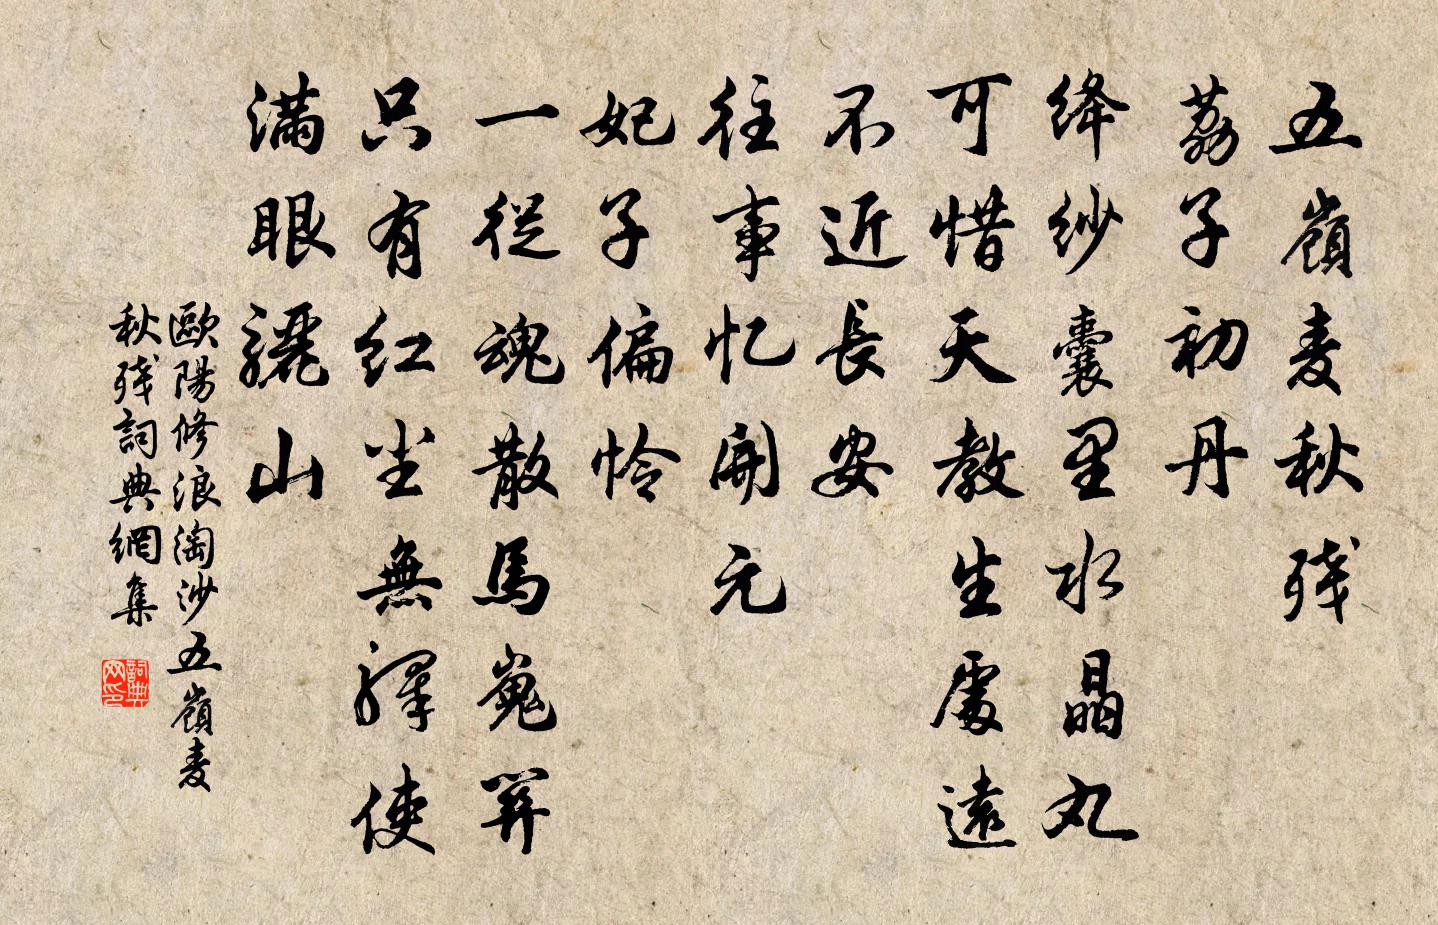 五嶺麦秋残
荔子初丹
绛纱囊里水晶丸
可惜天教生處遠
不近長安
往事忆開元
妃子偏怜
一從魂散馬嵬關
只有红尘無驛使
满眼驪山
歐陽修浪淘沙五嶺麦
秋残詞典網集
詞典网印